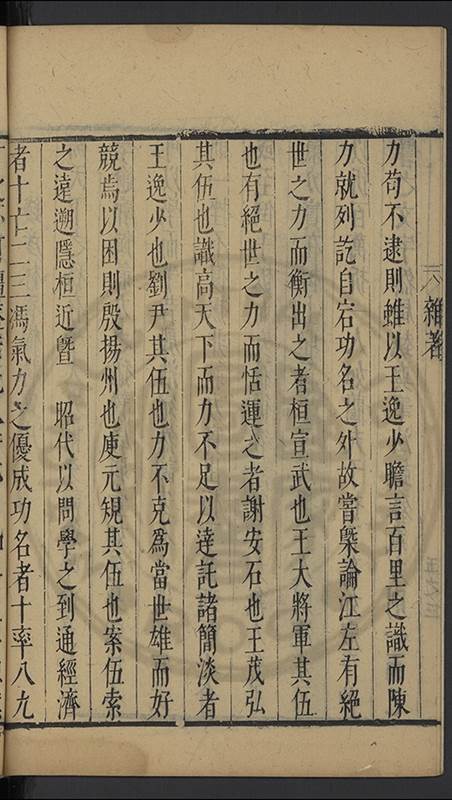 力苟不逮則雖以王逸少瞻言百里之識而陳
力就列訖自宕功名之外故嘗槩論江左有絕
世之力而衡出之者桓宣武也王大將軍其伍
也有絕世之力而恬運之者謝安石也王茂弘
其伍也識高天下而力不足以達託諸簡淡者
王逸少也劉尹其伍也力不克爲當世雄而好
競焉以困則殷揚州也庾元規其伍也案伍索
之遠遡隱桓近曁 昭代以問學之到通經濟
者十亡二三馮氣力之優成功名者十率八九
雜著